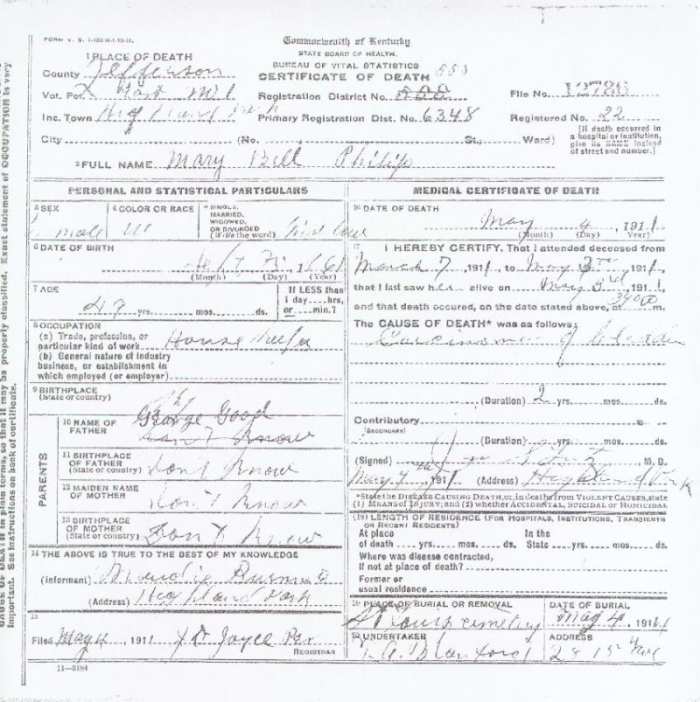 FORM V. S.
Commonwealth of Kentucky
STATE BOARD OF HEALTH.
BUREAU OF VITAL STATISTICS
CERTIFICATE OF DEATH
1 PLACE OF DEATH
County Jefferson
Vot. Pct.
Registration District No.
File No. 12786
Inc. Town Highland Park
Primary Registration Dist. No. 6348
Registered No. 22
City (No. St.; Ward)
[If death occurred in a hospital or institution, give its NAME instead of street and number.]
2 FULL NAME Mary Bell Philips
PERSONAL AND STATISTICAL PARTICULARS
3 SEX
4 COLOR OR RACE W
5 SINGLE, MARRIED, WIDOWED, OR DIVORCED (Write the word)
6 DATE OF BIRTH
(Month) (Day) (Year)
7 AGE
47 yrs. mos. ds.
If LESS than 1 day...hrs. or...min.?
8 OCCUPATION
(a) Trade, profession, or particular kind of work House Keeper
(b) General nature of industry business, or establishment in which employed (or employer)
9 BIRTHPLACE
(State or country)
10 NAME OF FATHER George Good
Don't Know
11 BIRTHPLACE OF FATHER
(State or country) Don't Know
PARENTS
12 MAIDEN NAME OF MOTHER Don't Know
13 BIRTHPLACE OF MOTHER
(State or country) Don't Know
14 THE ABOVE IS TRUE TO THE BEST OF MY KNOWLEDGE
(Informant)
(Address) Highland Park
15
Filed May 4 1911 Joyce
REGISTRAR
11-3184
MEDICAL CERTIFICATE OF DEATH
16 DATE OF DEATH
May 4, 1911
(Month) (Day) (Year)
17 I HEREBY CERTIFY, That I attended deceased from
March 7 1911, to May 3rd 1911,
that I last saw her alive on May 3rd 1911,
and that death occured, on the date stated above, at m.
The CAUSE OF DEATH* was as follows:
Carcinoma of
(Duration) 2 yrs. mos. ds.
Contributory
(SECONDARY)
(Duration) yrs. mos. ds.
(Signed) M. D.
May 1911 (Address) Highland Park
*State the DISEASE CAUSING DEATH, or, in deaths from VIOLENT CAUSES, state (1) MEANS OF INJURY; and (2) whether ACCIDENTAL, SUICIDAL or HOMICIDAL
(18) LENGTH OF RESIDENCE (FOR HOSPITALS, INSTITUTIONS, TRANSIENTS OR RECENT RESIDENTS)
At place of death yrs. mos. ds. In the State yrs. mos. ds.
Where was disease contracted, if not at place of death?
Former or usual residence
19 PLACE OF BURIAL OR REMOVAL
DATE OF BURIAL
cemetery May 4, 1911
20 UNDERTAKER
ADDRESS
properly classified. Exact statement of OCCUPATION is very
important. See instructions on back of certificate.